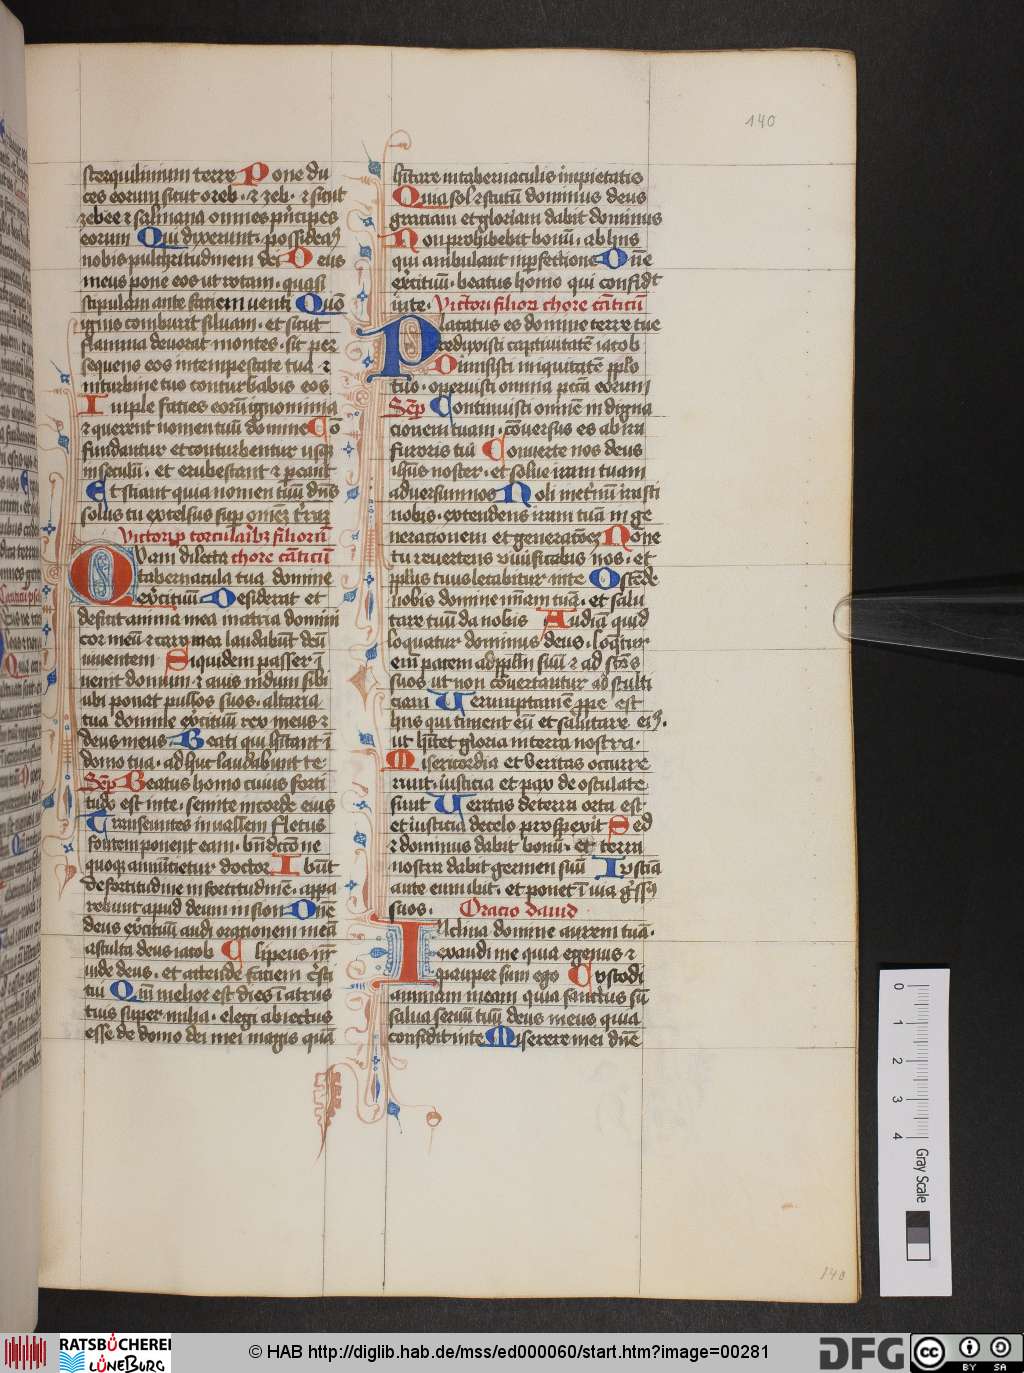 140
sterquilinium terre Pone du
ces eorum sicut oreb · ⁊ zeb · ⁊ sicut
zebee ⁊ salmana omnes pͥncipes
eorum Qui dixerunt · possideaꝰ
nobis pulchritudinem dei Deus
meus pone eos ut rotam · quasi
stipulam ante faciem uenti Quō
ignis comburit siluam · et sicut
flamma deuorat montes · sic per
sequens eos in tempestate tua · ⁊
in turbine tuo conturbabis eos
Imple facies eorū ignominia
⁊ querent nomen tuū domine Cō
fundantur et conturbentur usqꝫ
in seculū · et erubescant ⁊ pereāt
Et sciant quia nomen tuū dn̄s
solus tu excelsus suꝑ omnē t̄rā
Victori ꝓ torcularibꝫ filiorū
Quam dilecta chore cāticū
tabernacula tua domine
exercituū Desiderat et
deficit anima mea in atria domini
cor meū ⁊ caro mea laudabūt deū
uiuentem Siquidem passer ī
uenit domum · ⁊ auis nidum sibi
ubi ponat pullos suos · altaria
tua domine exercituū rex meus ⁊
deus meus · Beati qui hītant ī
domo tua · adhuc laudabunt te
Semꝑ Beatus homo cuius forti
tudo est in te · semite in corde eius
Transeuntes in uallem fletus
fontem ponent eam · bn̄dictōne
quoqꝫ amicietur doctor Ibūt
de fortitudine in fortitudinē · appa
rebunt apud deum in sion Dn̄e
deus exercituū audi orationem meā
asculta deus iacob Clipeus nr̄
uide deus · et attende faciem cͥsti
tui Qm̄ melior est dies ī atriis
tuis super milia · elegi abiectus
esse de domo dei mei magis quā
hītare in tabernaculis impietatis
Quia sol ⁊ scutū dominus deus
gratiam et gloriam dabit dominus
Non prohibebit bonū · ab hiis
qui ambulant in ꝑfectione Dn̄e
exercituū · beatus homo qui confidit
in te · Victori filiorū chore cāticū
Placatus es domine terre tue
reduxisti captiuitatē iacob
Dimisisti iniquitatē ppl'o
tuo · operuisti omnia pctā eorum
Semꝑ Continuisti omnem indigna
cionem tuam · cōuersus es ab ira
furoris tui Conuerte nos deus
ihūs noster · et solue iram tuam
aduersum nos Noli in eternū irasci
nobis · extendens iram tuā in ge
nerationem et generatōeꝫ Nōne
tu reuertens viuificabis nos · et
ppl'us tuus letabitur in te Ostēde
nobis domine mīam tuā · et salu
tare tuū da nobis Audiā quid
loquatur dominus deus · loqͥtur
enī pacem ad ppl'm suū ⁊ ad scōs
suos ut non cōuertantur ad stulti
ciam Verumptamē ꝓpe est
hiis qui timent eū et salutare eiꝰ ·
ut hītet gloria in terra nostra ·
Misericordia et veritas occurre
runt · iusticia et pax deosculate
sunt Veritas de terra orta est
et iusticia de celo prospexit Sed
⁊ dominus dabit bonū · et terra
nostra dabit germen suū Iusticia
ante eum ibit · et ponet ī uia gressꝰ
suos · Oracio dauid
Inclina domine aurem tuā ·
exaudi me quia egenus ⁊
pauper sum ego Custodi
animam meam quia sanctus sū
salua seruū tuū deus meus quia
confidit in te Miserere mei dn̄e
140
0 1 2 3 4
Gray Scale
RATSBÜCHEREI
LÜNEBURG
© HAB http://diglib.hab.de/mss/ed000060/start.htm?image=00281
DFG
cc BY SA